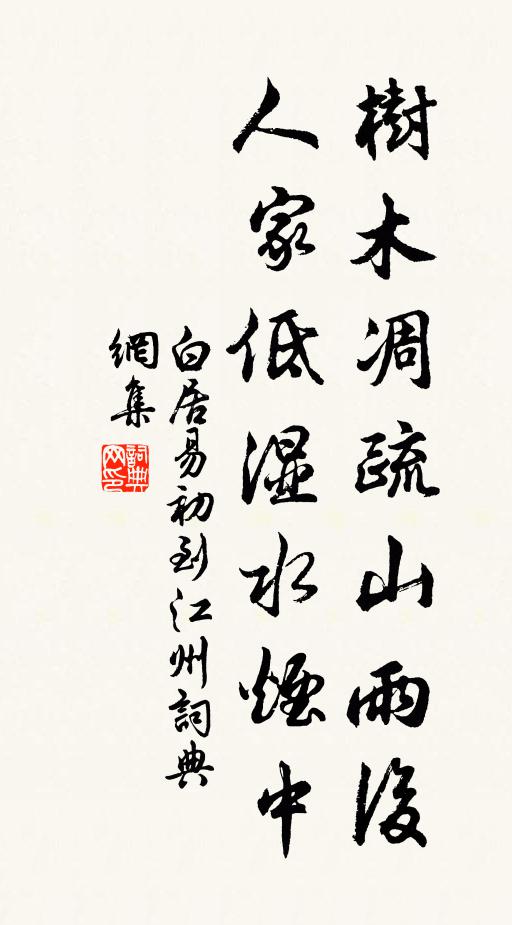 樹木凋疏山雨後
人家低濕水煙中
白居易初到江州詞典
網集
詞典
网印